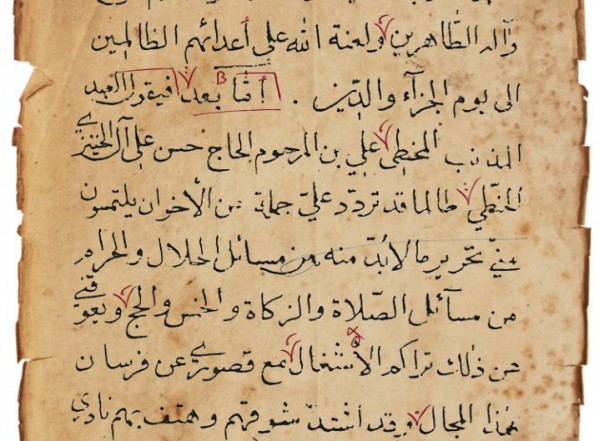 وآله الطّاهرين ولعنة الله على أعدائهم الظالمين
الى يوم الجزآء والدّين . أمّا بعد فيقول العبد
المذنب المخطي علي بن المرحوم الحاج حسن علي آل الخنيزي
الخطّي طالما قد تردّد عليّ جملة من الأخوان يلتمسون
منّي تحرير ما لا بدّ منه من مسائل الحلال والحرام
من مسآئل الصّلاة والزكاة والخمس والحج ويعوقني
عن ذلك تراكم الأشتغال مع قصوري عن فرسان
هذا المجال وقد أشتدّ شوقهم وهتف بهم نادي